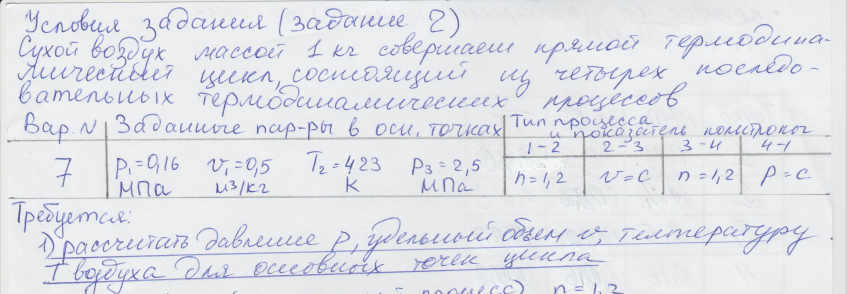 Условия задания (задание 2)
Сухой воздух массой 1 кг совершает прямой термодина-
мический цикл, состоящий из четырех последо-
вательных термодинамических процессов
Вар. N Заданные пар-ры в осн. точках Тип процесса
и показатель политропы
1-2 2-3 3-4 4-1
7 p₁=0,16 v₁=0,5 T₂=423 p₃=2,5 n=1,2 v=c n=1,2 p=c
МПа м3/кг К МПа
Требуется:
1) рассчитать давление p, удельный объем v, температуру
T воздуха для основных точек цикла
процесс) n=1,2